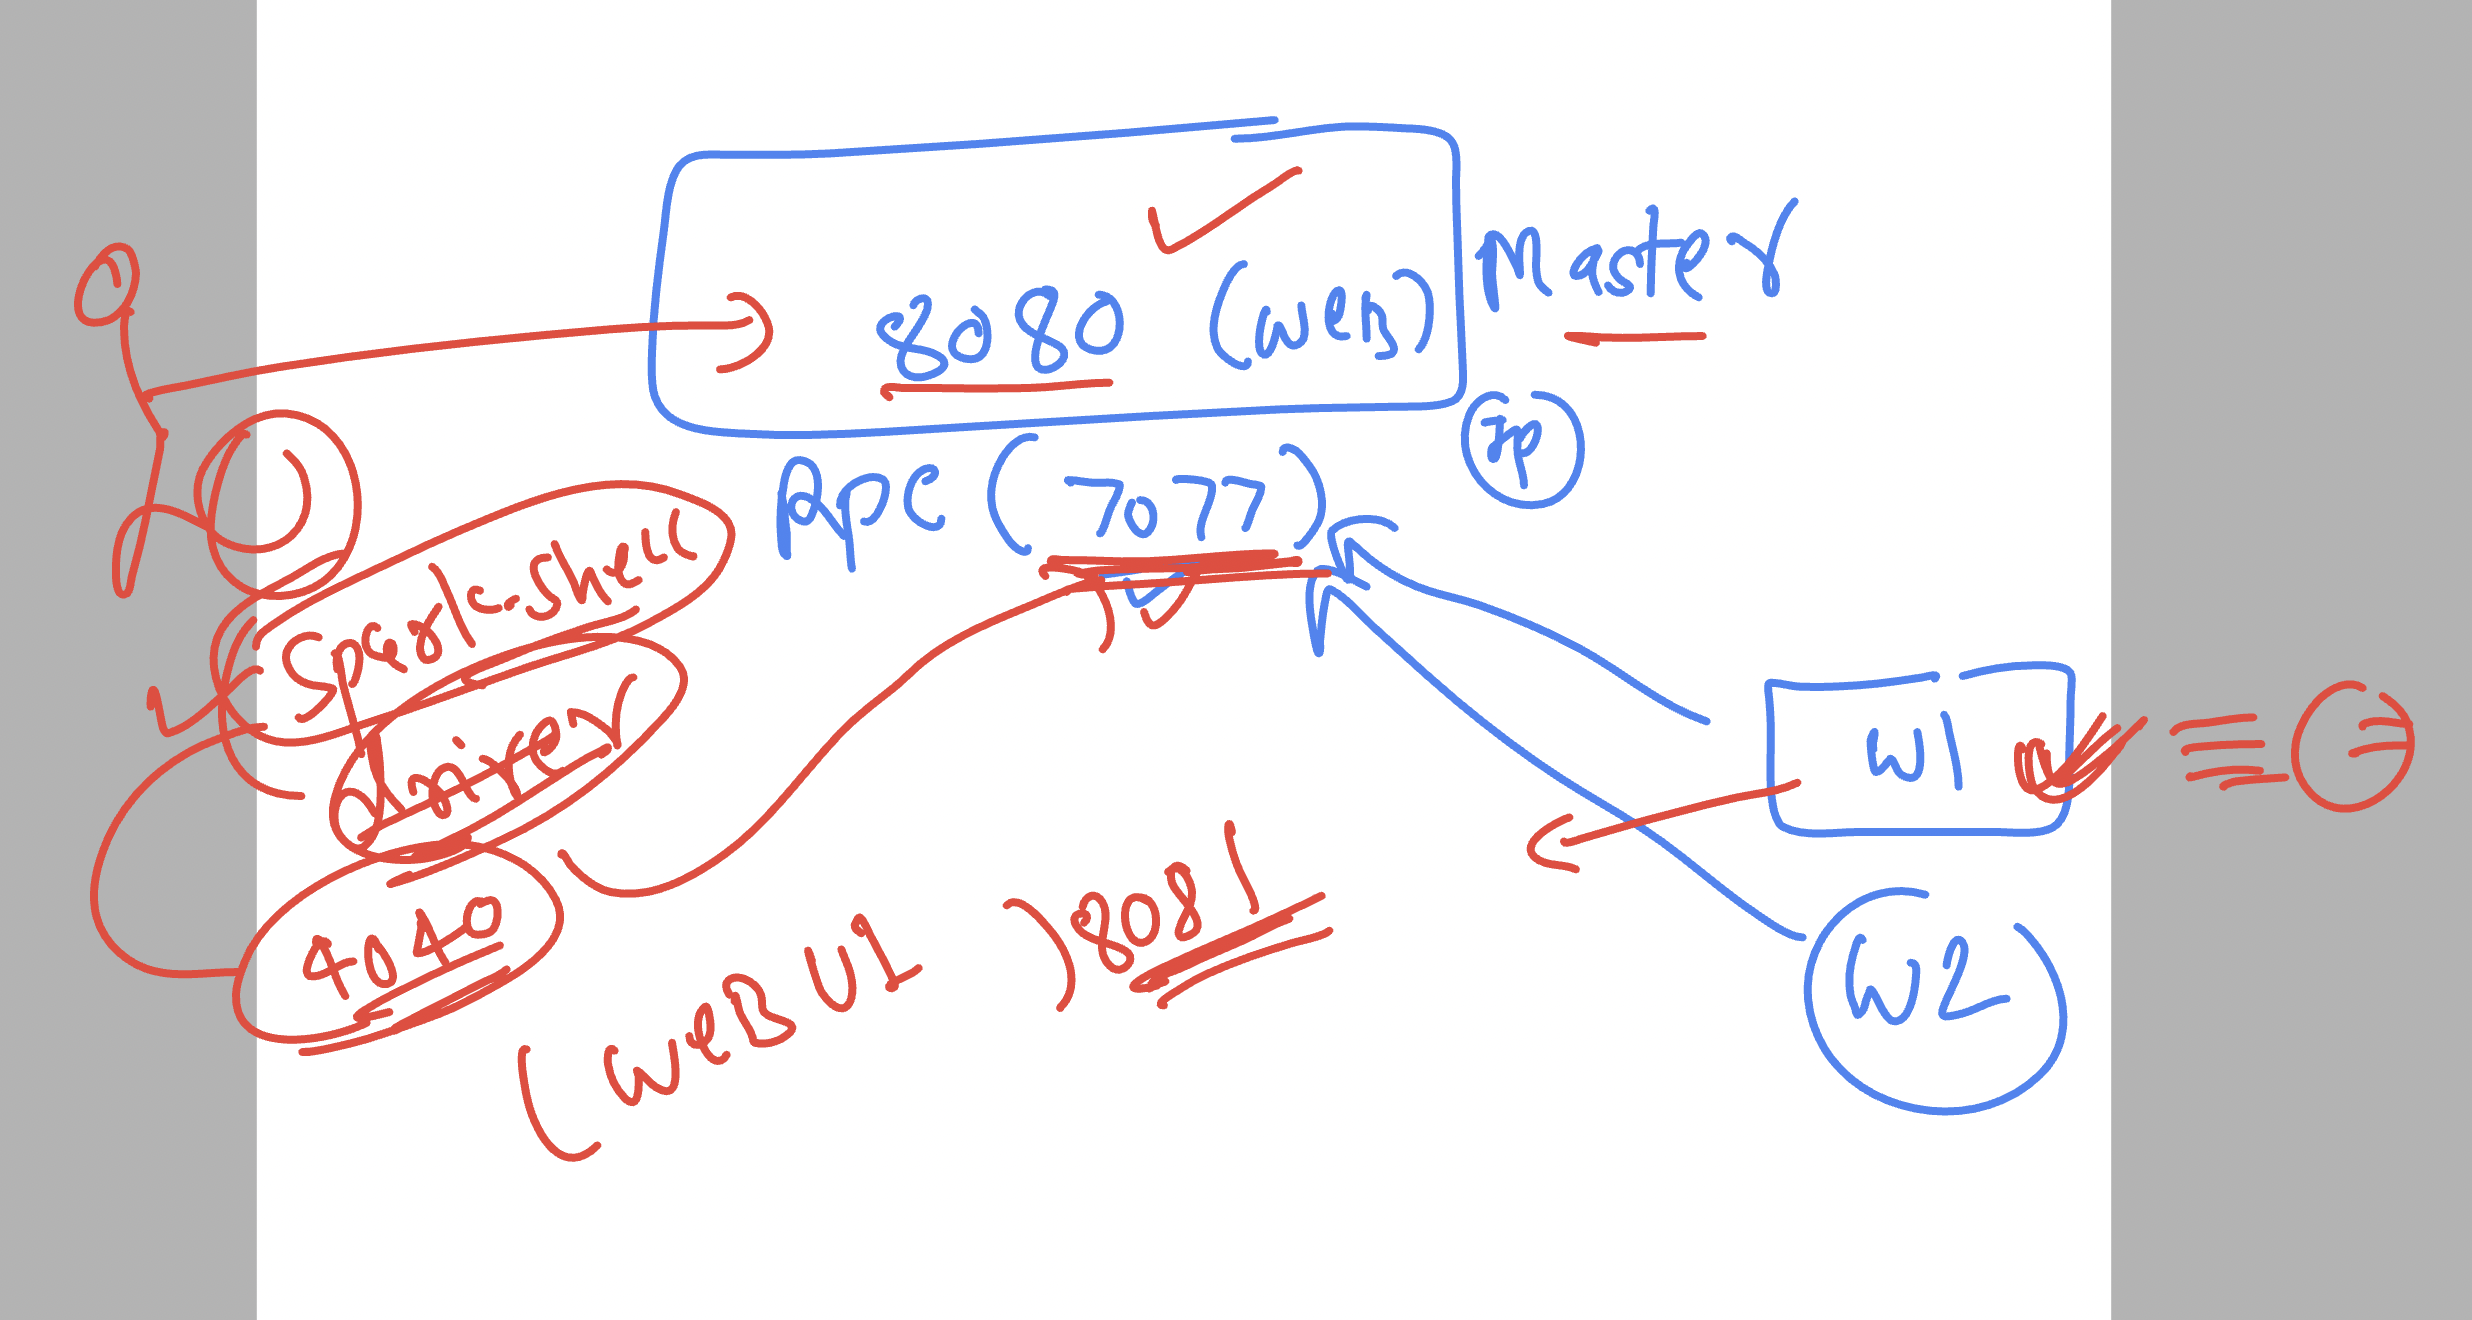 8080 (Web)
Master
IP
RPC (7077)
Spark-shell
Driver
4040
W1
W2
(WEB UI) 8081